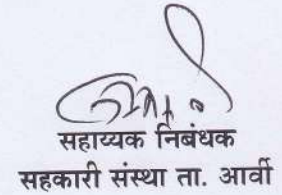 सहाय्यक निबंधक
सहकारी संस्था ता. आर्वी